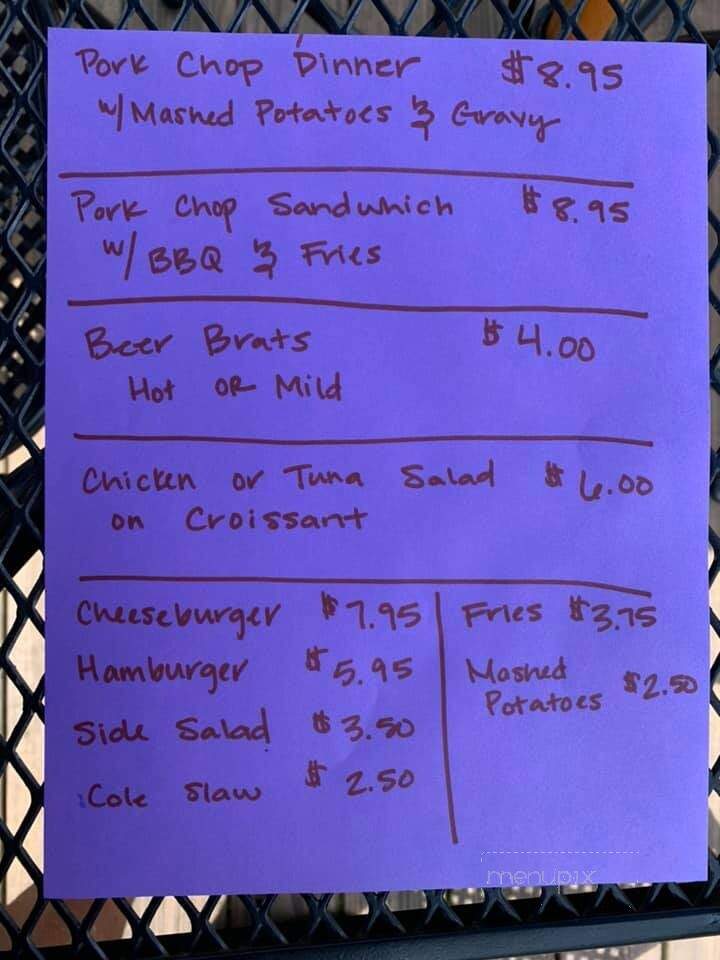 Pork Chop Dinner $8.95
w/ Mashed Potatoes & Gravy
Pork Chop Sandwhich $8.95
w/ BBQ & Fries
Beer Brats $4.00
Hot OR Mild
Chicken or Tuna Salad $6.00
on Croissant
Cheeseburger $7.95
Hamburger $5.95
Side Salad $3.50
Cole Slaw $2.50
Fries $3.75
Mashed
Potatoes $2.50
menupix